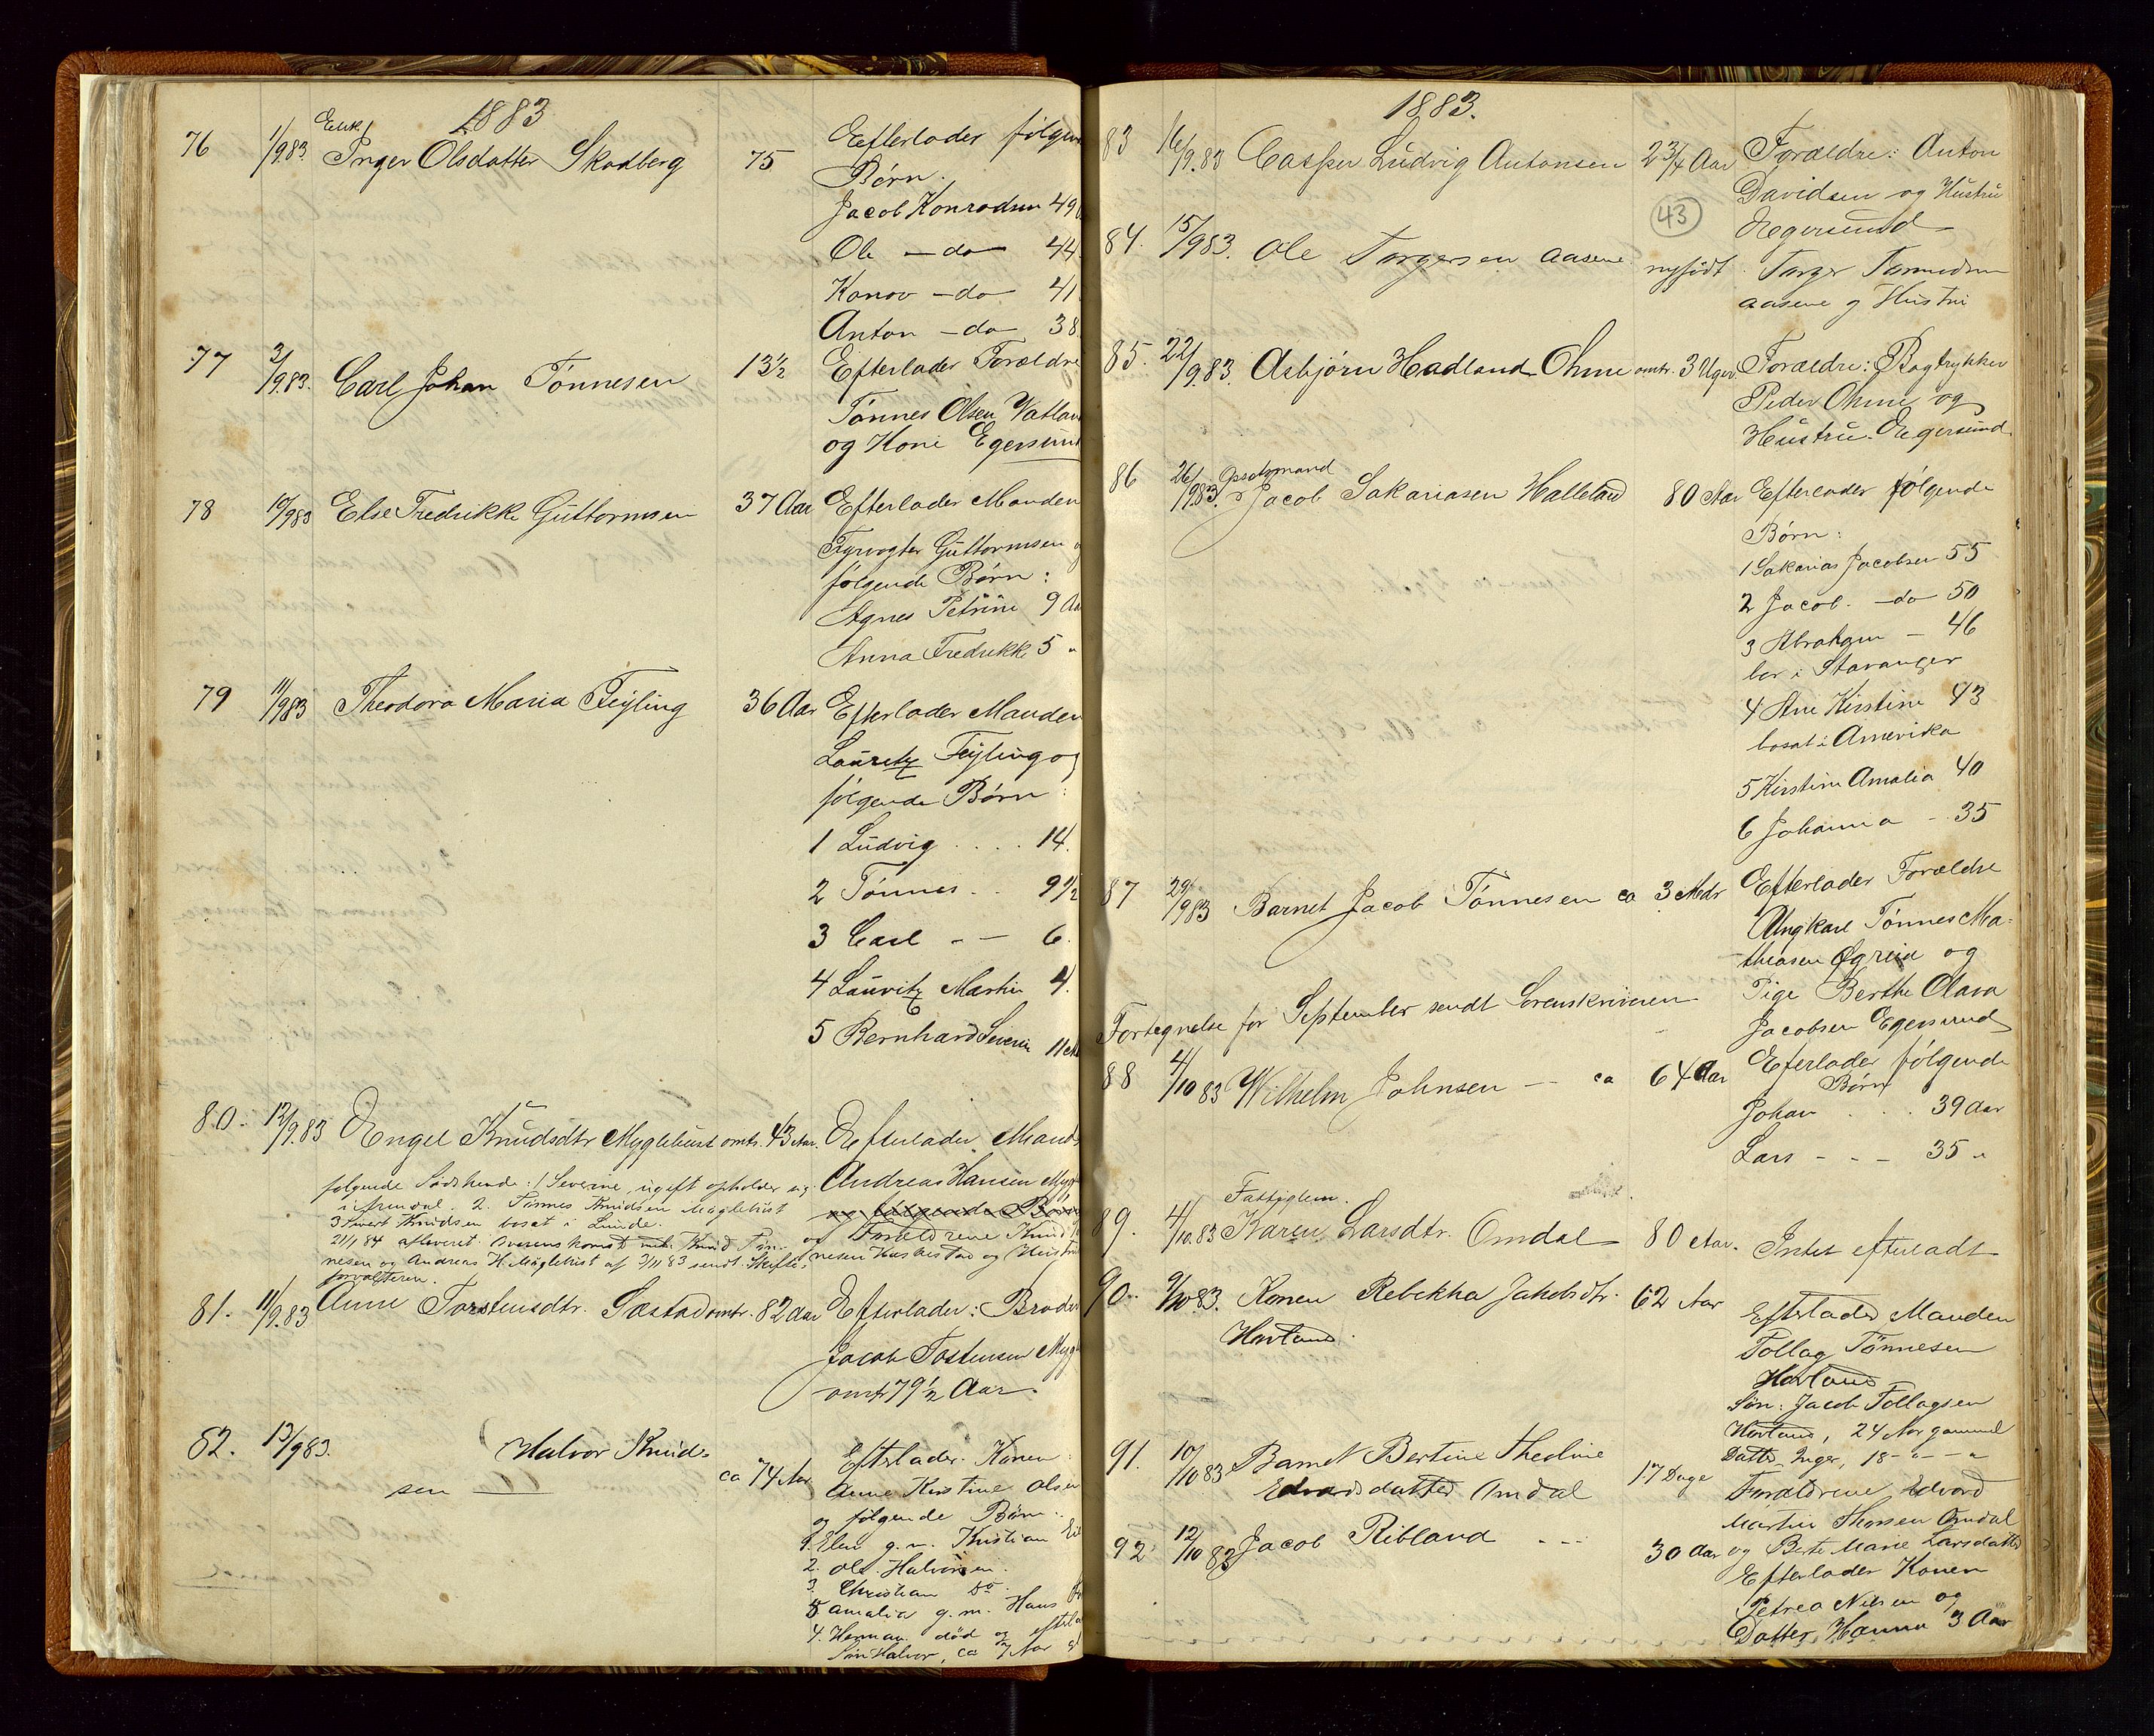 1883
76 1/9.83. Enk. Inger Olsdatter Skadberg 75 Eefterlader følgen
Børn.
Jacob Konradsen 49
Ole — do — 44.
Konov — do 41
Anton — do — 38
77 3/9.83. Carl Johan Tönnesen 13½ Efterlader Forældre
Tönnes Olsen Vatlan
og Kone Egersund
78 10/983 Else Fredrikke Guttormsen 37 Aar Efterlader Manden
Fyrvogter Guttormsen
følgende Børn:
Agnes Petrine 9 Aa
Anna Fredrikke 5 "
79 11/983 Theodora Maria Feyling 36 Aar Efterlader Manden
Lauritz Feyling og
følgende Børn:
1 Ludvig .... 14.
2 Tönnes .. 9½
3 Carl - — 6.
4 Lauritz Martin 4.
5 Bernhard Severin 11
80. 12/9.83 Engel Knudsdtr Myglehust omtr. 43 Aar. Efterlader Mand
Andreas Hansen Myg
og følgende Børn
og Forældrene Knud
nesen og Hustru
følgende Sødskende: 1 Severine, ugift opholder sig
i Arendal. 2. Tönnes Knudsen Møglehust
3 Sivert Knudsen bosat i Lunde.
21/1 84 afleveret Overenskomst mel. Knud Tön-
nesen og Andreas H. Møglehust af 3/11 83 sendt Skifte-
forvalteren.
81. 11/9.83 Anne Torstensdtr. Sæstad omtr. 82 Aar Efterlader: Broder
Jacob Tostensen Myg
omtr 79½ Aar.
82. 13/983. Halvor Knud-
sen — ca 74 Aar Efterlader Konen:
Anne Kirstine Olsen
og følgende Børn.
1. Elen g. m. Kristian
2. Ole Halvorsen.
3. Christian do.
5 Amalia g. m. Hans
4. Herman død og efterla
Søn Halvor, ca 7 Aar
1883.
83 16/9.83 Casper Ludvig Antonsen 2¾ Aar Forældre: Anton
Davidsen og Hustru
Egersund
43
84. 15/983. Ole Torgersen Aasene nyfödt. Torger Tormodsen
Aasene og Hustru
85. 22/9.83. Asbjørn Hadland Ohme omtr. 3 Uger. Forældre: Bogtrykker
Peder Ohme og
Hustru. Egersund
86 26/983. Opsatsmand Jacob Sakariasen Halleland 80 Aar Efterlader følgende
Børn:
1 Sakarias Jacobsen 55
2 Jacob. — do 50
3 Abraham — 46
bor i Stavanger
4 Ane Kirstine 43
bosat i Amerika
5 Kirstine Amalia 40
6 Johanna - 35
87 29/983 Barnet Jacob Tönnesen ca 3 Mdr Efterlader Forældre
Ungkarl Tönnes Ma-
thiasen Øgreid og
Pige Berthe Olava
Jacobsen Egersund
Fortegnelse for September sendt Sorenskriveren
88 4/10 83 Wilhelm Johnsen — ca 64 Aar Efterlader følgende
Børn
Johan . . . 39 Aar
Lars - - - 35 "
89. 4/10.83 Fattiglem. Karen Larsdtr. Omdal 80 Aar. Intet efterladt
90. 9/10 83. Konen Rebekka Jakobsdtr. 62 Aar Efterlader Manden
Hovland. Tollag Tönnesen
Hovland
Søn: Jacob Tollagsen
Hovland, 24 Aar gammel
Datter Inger, 18 - " - "
91. 10/10 83 Barnet Bertine Theoline
Edvardsdatter Omdal 17 Dage Forældrene Edvard
Martin Thorsen Omdal
og Berte Marie Larsdatter
92 12/10 83 Jacob Ribland - - - 30 Aar Efterlader Konen
Petrea Nilsen og
Datter Hanna 3 Aar